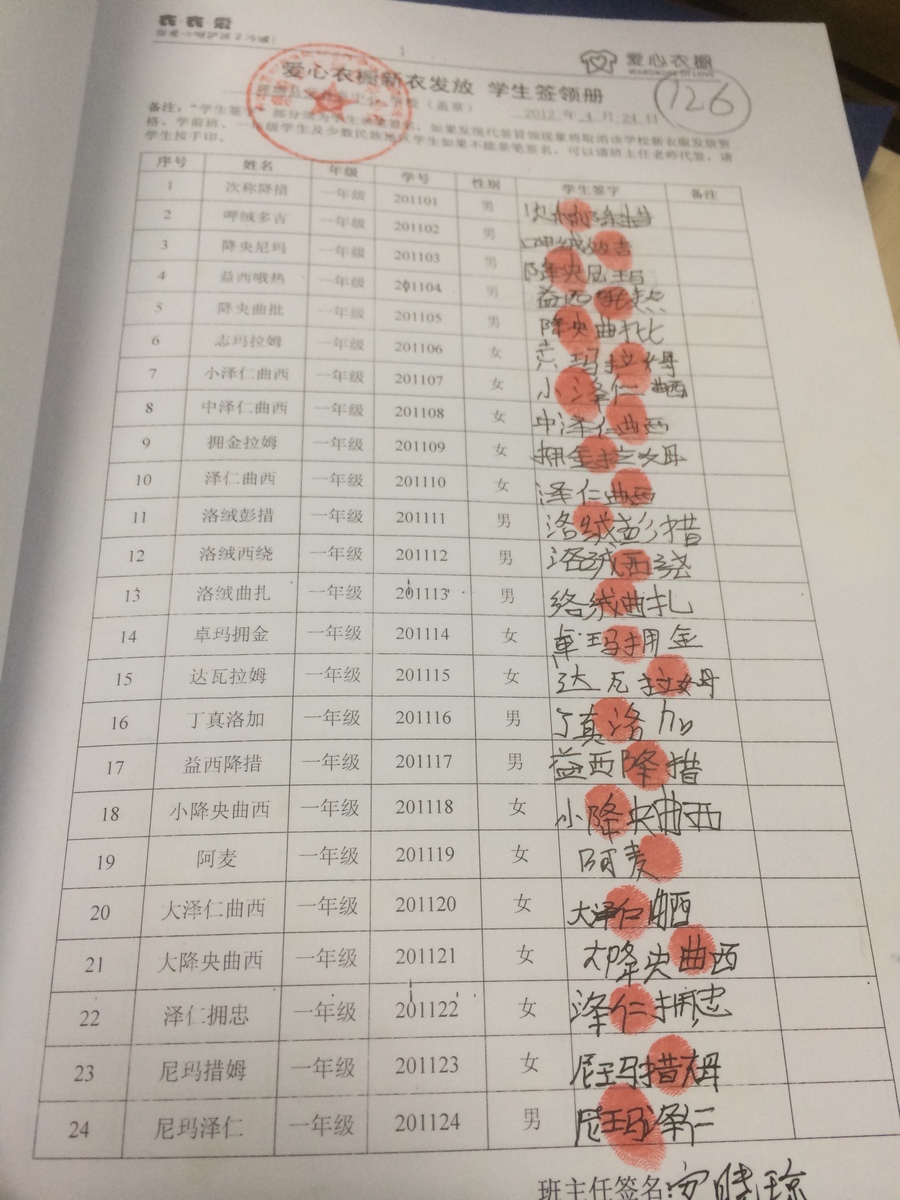 衣衣爱
爱心衣橱
WARDROBE OF LOVE
爱心衣橱新衣发放 学生签领册
(盖章)
2012 年 4 月 24 日
126
备注:“学生签字”部分须为学生亲笔签名,如果发现代签冒领现象将取消该学校新衣服发放资
格。学前班、一年级学生及少数民族地区学生如果不能亲笔签名,可以请班主任老师代签,请
学生按手印。
序号 姓名 年级 学号 性别 学生签字 备注
1 次称降措 一年级 201101 男 次称降措
2 呷绒多吉 一年级 201102 男 呷绒多吉
3 降央尼玛 一年级 201103 男 降央尼玛
4 益西哦热 一年级 201104 男 益西哦热
5 降央曲批 一年级 201105 男 降央曲批
6 志玛拉姆 一年级 201106 女 志玛拉姆
7 小泽仁曲西 一年级 201107 女 小泽仁曲西
8 中泽仁曲西 一年级 201108 女 中泽仁曲西
9 拥金拉姆 一年级 201109 女 拥金拉姆
10 泽仁曲西 一年级 201110 女 泽仁曲西
11 洛绒彭措 一年级 201111 男 洛绒彭措
12 洛绒西绕 一年级 201112 男 洛绒西绕
13 洛绒曲扎 一年级 201113 男 络绒曲扎
14 卓玛拥金 一年级 201114 女 卓玛拥金
15 达瓦拉姆 一年级 201115 女 达瓦拉姆
16 丁真洛加 一年级 201116 男 丁真洛加
17 益西降措 一年级 201117 男 益西降措
18 小降央曲西 一年级 201118 女 小降央曲西
19 阿麦 一年级 201119 女 阿麦
20 大泽仁曲西 一年级 201120 女 大泽仁曲西
21 大降央曲西 一年级 201121 女 大降央曲西
22 泽仁拥忠 一年级 201122 女 泽仁拥忠
23 尼玛措姆 一年级 201123 女 尼玛措姆
24 尼玛泽仁 一年级 201124 男 尼玛泽仁
班主任签名: